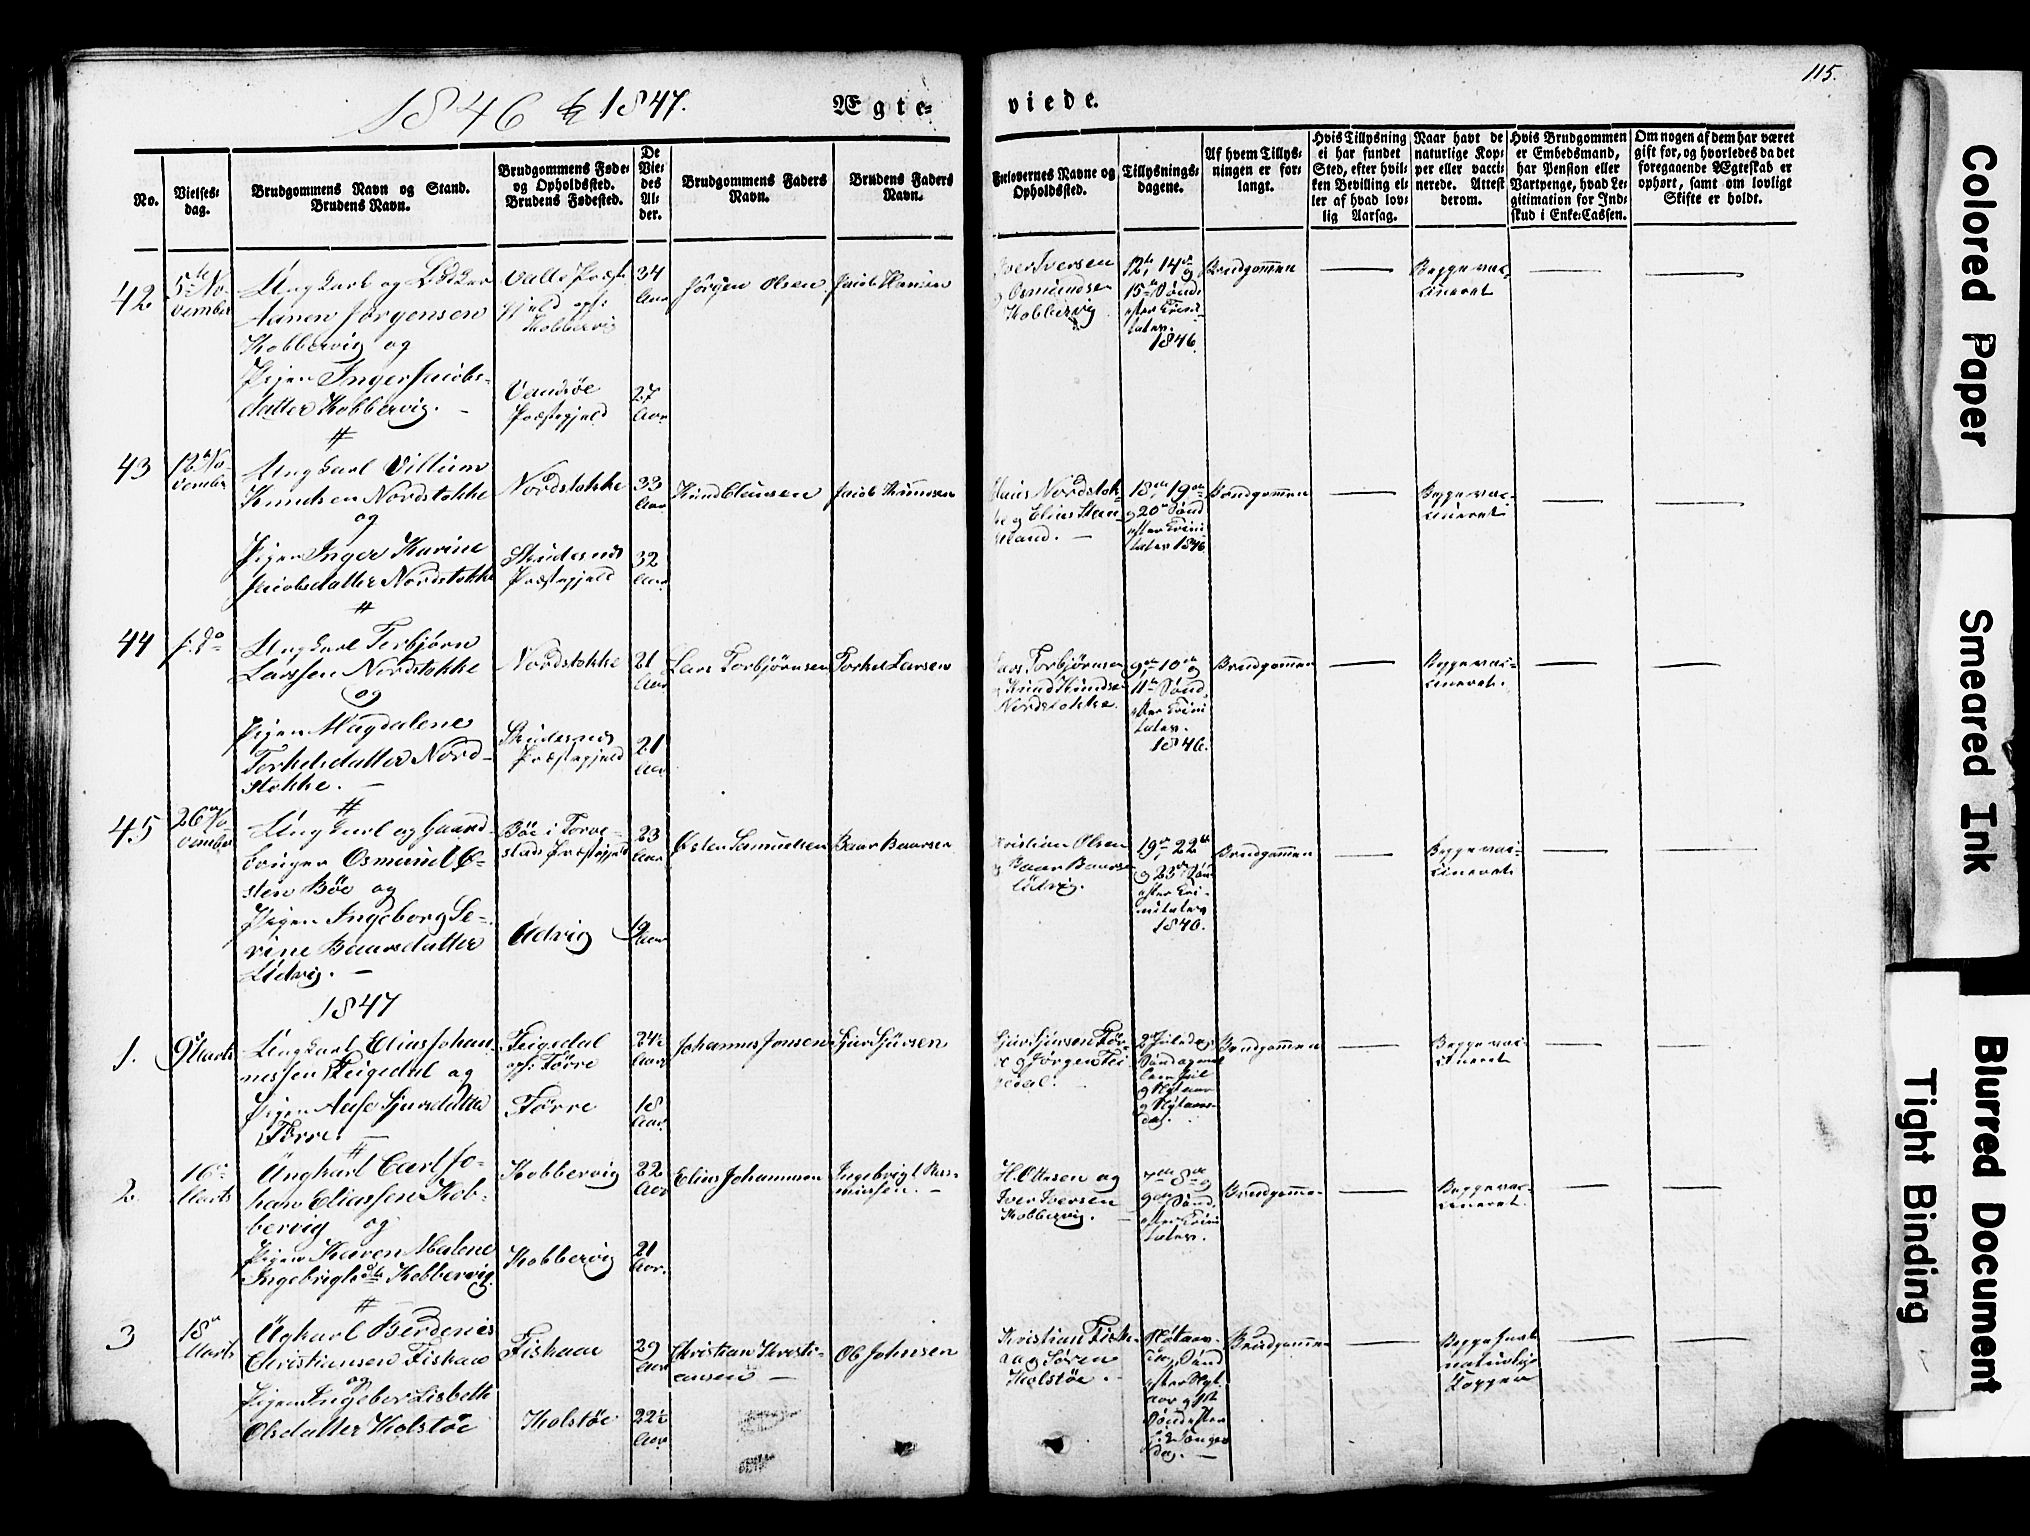 1846 & 1847.
Ægte=
viede.
115.
No.
Vielses=
dag.
Brudgommens Navn og Stand.
Brudens Navn.
Brudgommens Føde=
og Opholdssted.
Brudens Fødested.
De
Vie=
des
Al=
der.
Brudgommens Faders
Navn.
Brudens Faders
Navn.
Forlovernes Navne og
Opholdssted.
Tillysnings=
dagene.
Af hvem Tillys=
ningen er for=
langt.
Hvis Tillysning
ei har fundet
Sted, efter hvil=
ken Bevilling el=
ler af hvad lov=
lig Aarsag.
Naar havt de
naturlige Kop=
per eller vacci=
nerede. Attest
derom.
Hvis Brudgommen
er Embedsmand,
har Pension eller
Vartpenge, hvad Le=
gitimation for Ind=
skud i Enke=Cassen.
Om nogen af dem har været
gift før, og hvorledes da det
foregaaende Ægteskab er
ophørt, samt om lovligt
Skifte er holdt.
42
5te No-
vember
Ungkarl og
Jørgensen
Kobbervig og
Pigen Inger Jacobs-
datter Kobbervig. —
Valle Præste
gjeld oph:
Kobbervig
Præstegjeld
34
Aar
27
Aar
Jørgen Olsen
Jacob Hansen
Iver Iversen
og Osmundsen
Kobbervig
12te, 14de og
15de Sønd.
efter Trini-
tates.
1846.
Brudgommen
Begge vac-
cineret
43
12te No-
vember
Ungkarl Villum
Knudsen Nordstokke
og
Pigen Inger Karine
Jacobsdatter Nordstokke
Nordstokke
Skudesnes
Præstegjeld
33
Aar
32
Aar
Knud Clausen
Jacob Knudsen
Claus Nordstok-
ke og Elias Stan-
geland.
18de, 19de
og 20de Sønd
efter Trini
tates 1846
Brudgommen
Begge vac-
cineret
44
s: Do
Ungkarl Torbjørn
Larssen Nordstokke
og
Pigen Magdalene
Torkelsdatter Nord-
stokke. —
Nordstokke
Skudesnes
Præstegjeld
21
Aar
21
Aar
Lars Torbjørnsen
Torkel Larsen
Lars Torbjørnsen
og Knud Knudsen
Nordstokke.
9de, 10de og
11te Sønd.
efter Trini
tates.
1846.
Brudgommen
Begge vac-
cineret.
45
26de No-
vember
Ungkarl og Gaard-
bruger Osmund Ø-
sten Bøe og
Pigen Ingeborg Se-
rine Baarsdatter
Udvig. —
Bøe i Torve-
stads Præstegjeld
Udvig
23
Aar
19
Aar
Østen Samuelsen
Baar Baarsen
Kristian Olsen
og Baar Baarsen
Udvig.
19de, 22de
og 23de Søn
efter Tri-
nitates
1846.
Brudgommen
Begge vac-
cineret
1847
1.
9 Marts
Ungkarl Elias Johan-
nessen Feigedal og
Pigen Aase Sjursdatter
Førre.
Feigedal
oph: Førre
Førre
24½
Aar
18
Aar.
Johannes Jonsen
Sjur Sjursen
Sjur Sjursen Før-
re og Jørgen Fei
gedal.
2 Juledag
Søndagen
mel. Juel
og Nytaar
og Nytaars-
dag.
Brudgommen
Begge vac-
cineret
2.
16de
Marts
Ungkarl Carl Jo-
han Eliassen Kob-
bervig og
Pigen Karen Malene
Ingebrigtsdtr Kobbervig.
Kobbervig
Kobbervig
22
Aar
21
Aar.
Elias Johannesen
Ingebrigt Ras-
mussen. —
H. Ottesen og
Iver Iversen
Kobbervig. —
7de, 8de og
9de Sønd.
efter Trini
tates.
Brudgommen
Begge vac-
cineret.
3
18de
Marts
Ugkarl Berdenis
Christiansen Fiskaae
og
Pigen Ingebor Lisbeth
Olsdatter Kolstøe
Fiskaae
Kolstøe
29
Aar
22½
Aar
Christian Kristi-
ansen —
Ole Johnsen
Kristian Fiska-
a og Søren
Kolstøe.
Nytaar-
dag, Sønd
efter Nyt-
aar og 1st
Sønd efter
H: 3 Konger
dag. —
Brudgommen
Begge havt
naturlige
Kopper
Colored Paper
Smeared Ink
Blurred Document
Tight Binding